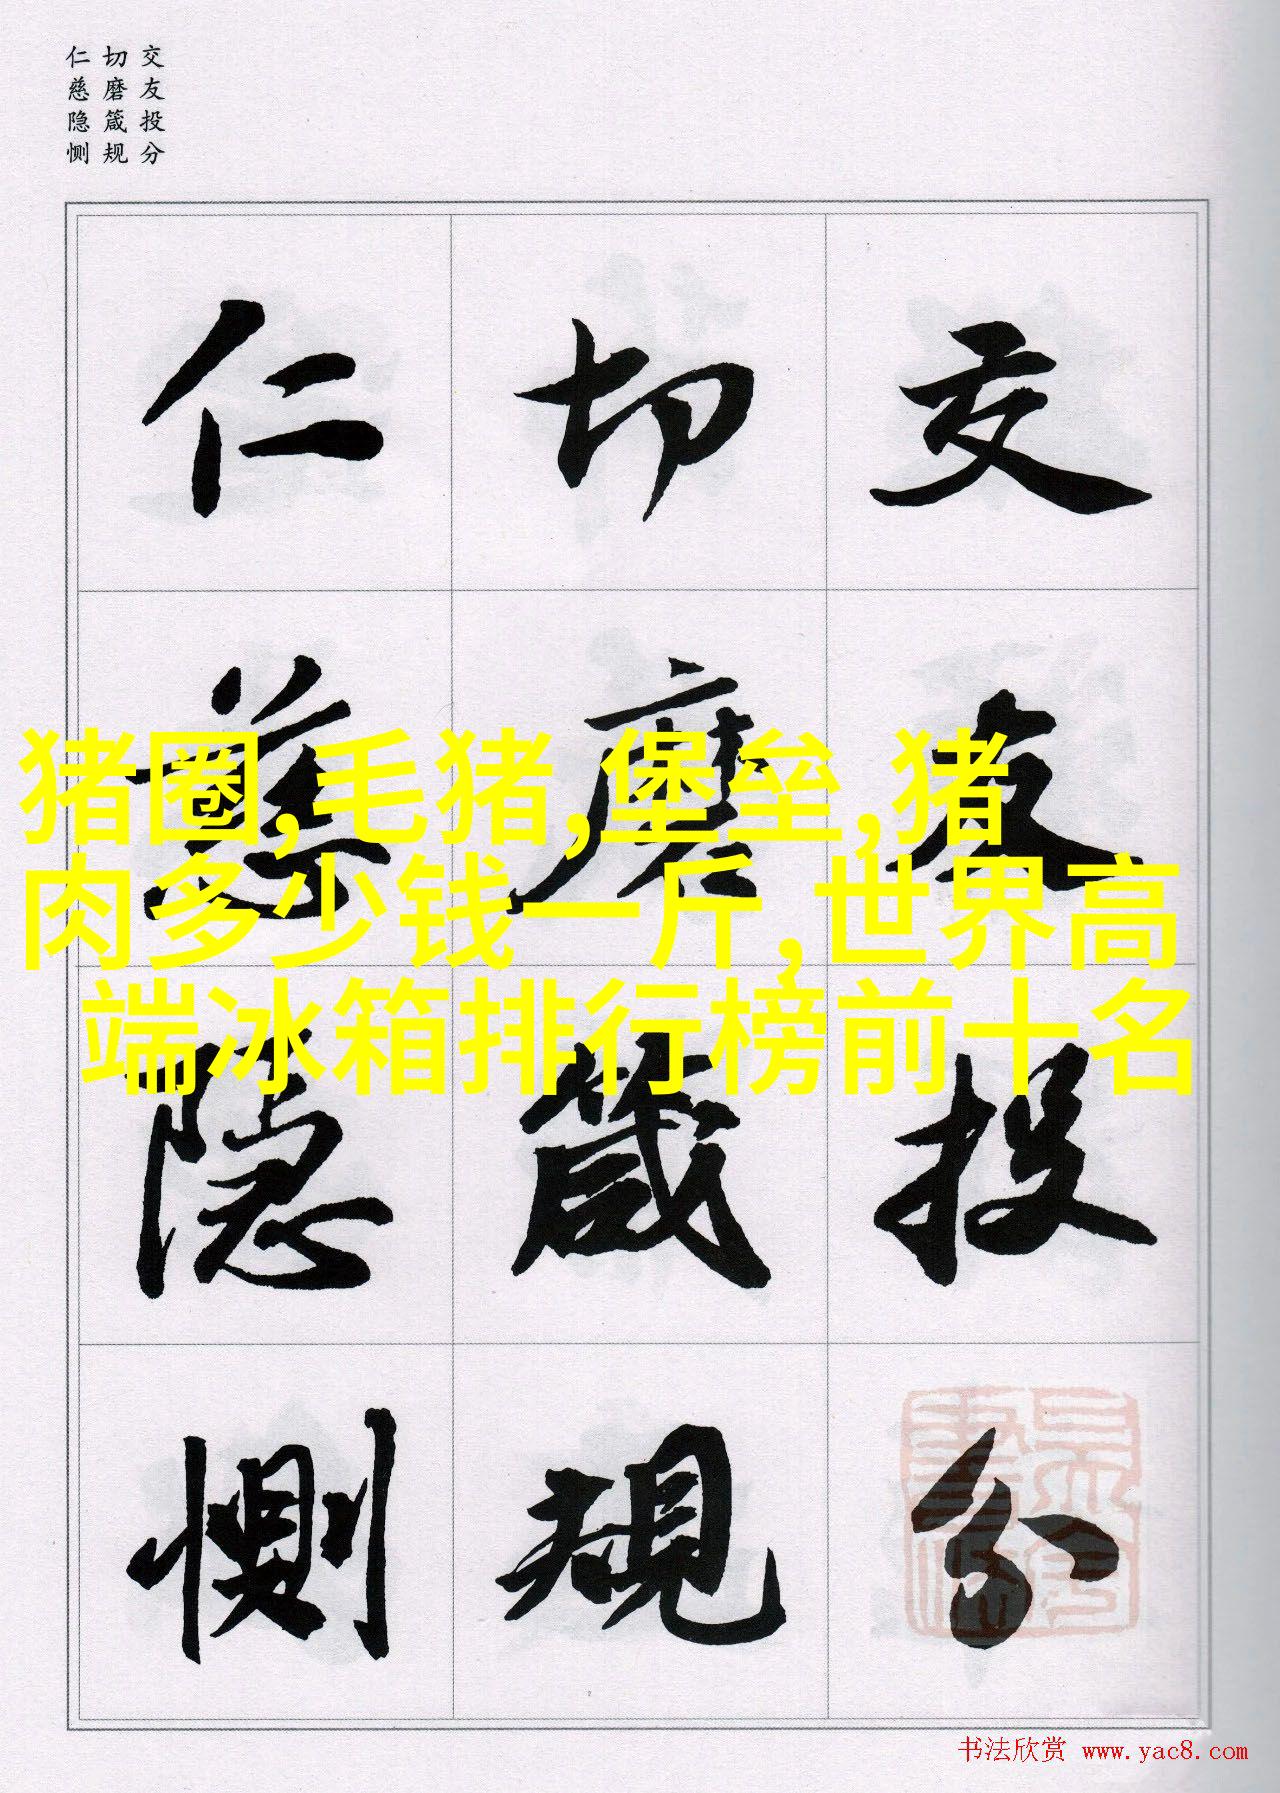 交友投分
切磨箴规
仁慈隐恻
交友投分
切磨箴規
仁慈隱惻
猪圈,毛猪,堡垒,猪
肉多少钱一斤,世界高
端冰箱排行榜前十名
书法欣赏 www.yac8.com